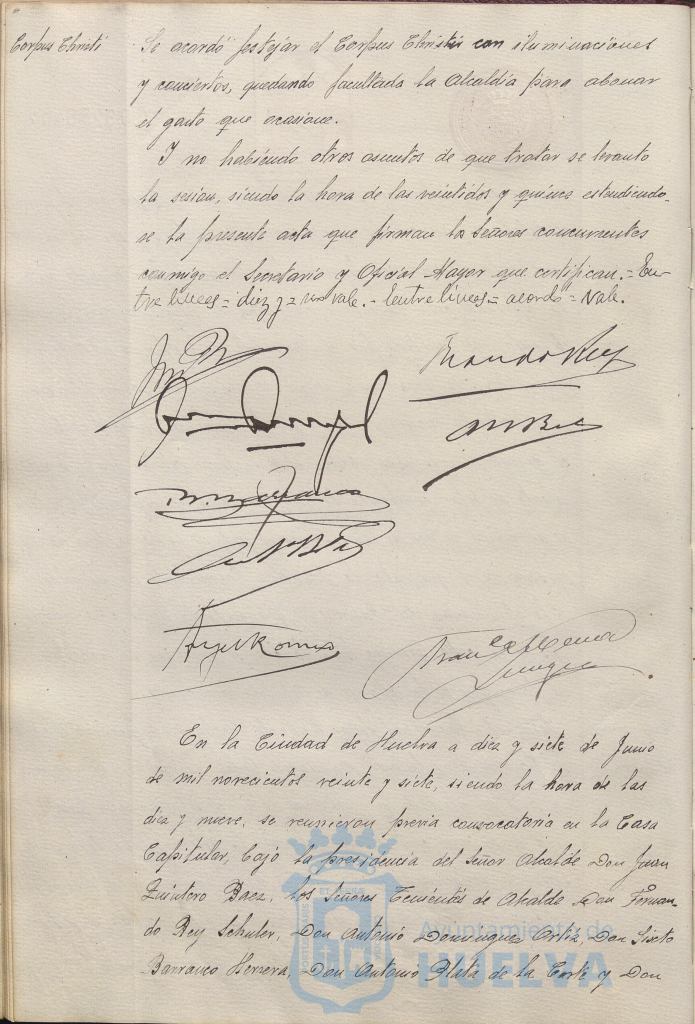 Corpus Christi
Se acordó festejar el Corpus Christi con iluminaciones
y conciertos, quedando facultada la Alcaldía para abonar
el gasto que ocasione.
Y no habiendo otros asuntos de que tratar se levanto
la sesion, siendo la hora de las veintidos y quince estendiendo-
se la presente acta que firman los Señores concurrentes
conmigo el Secretario y Oficial Mayor que certifican.= En-
tre lineas = diez y = no vale. - Entre lineas = acordó = Vale.
Fernando Rey
B. Barranco
Angel Romero
En la Ciudad de Huelva a diez y siete de Junio
de mil novecientos veinte y siete, siendo la hora de las
diez y nueve, se reunieron previa convocatoria en la Casa
Capitular, bajo la presidencia del Señor Alcalde Don Juan
Quintero Baez, los Señores Tenientes de Alcalde Don Fernan-
do Rey Schuler, Don Antonio Dominguez Ortiz, Don Sixto
Barranco Herrera, Don Antonio Blatá de la Corte y Don
Ayuntamiento de
HUELVA